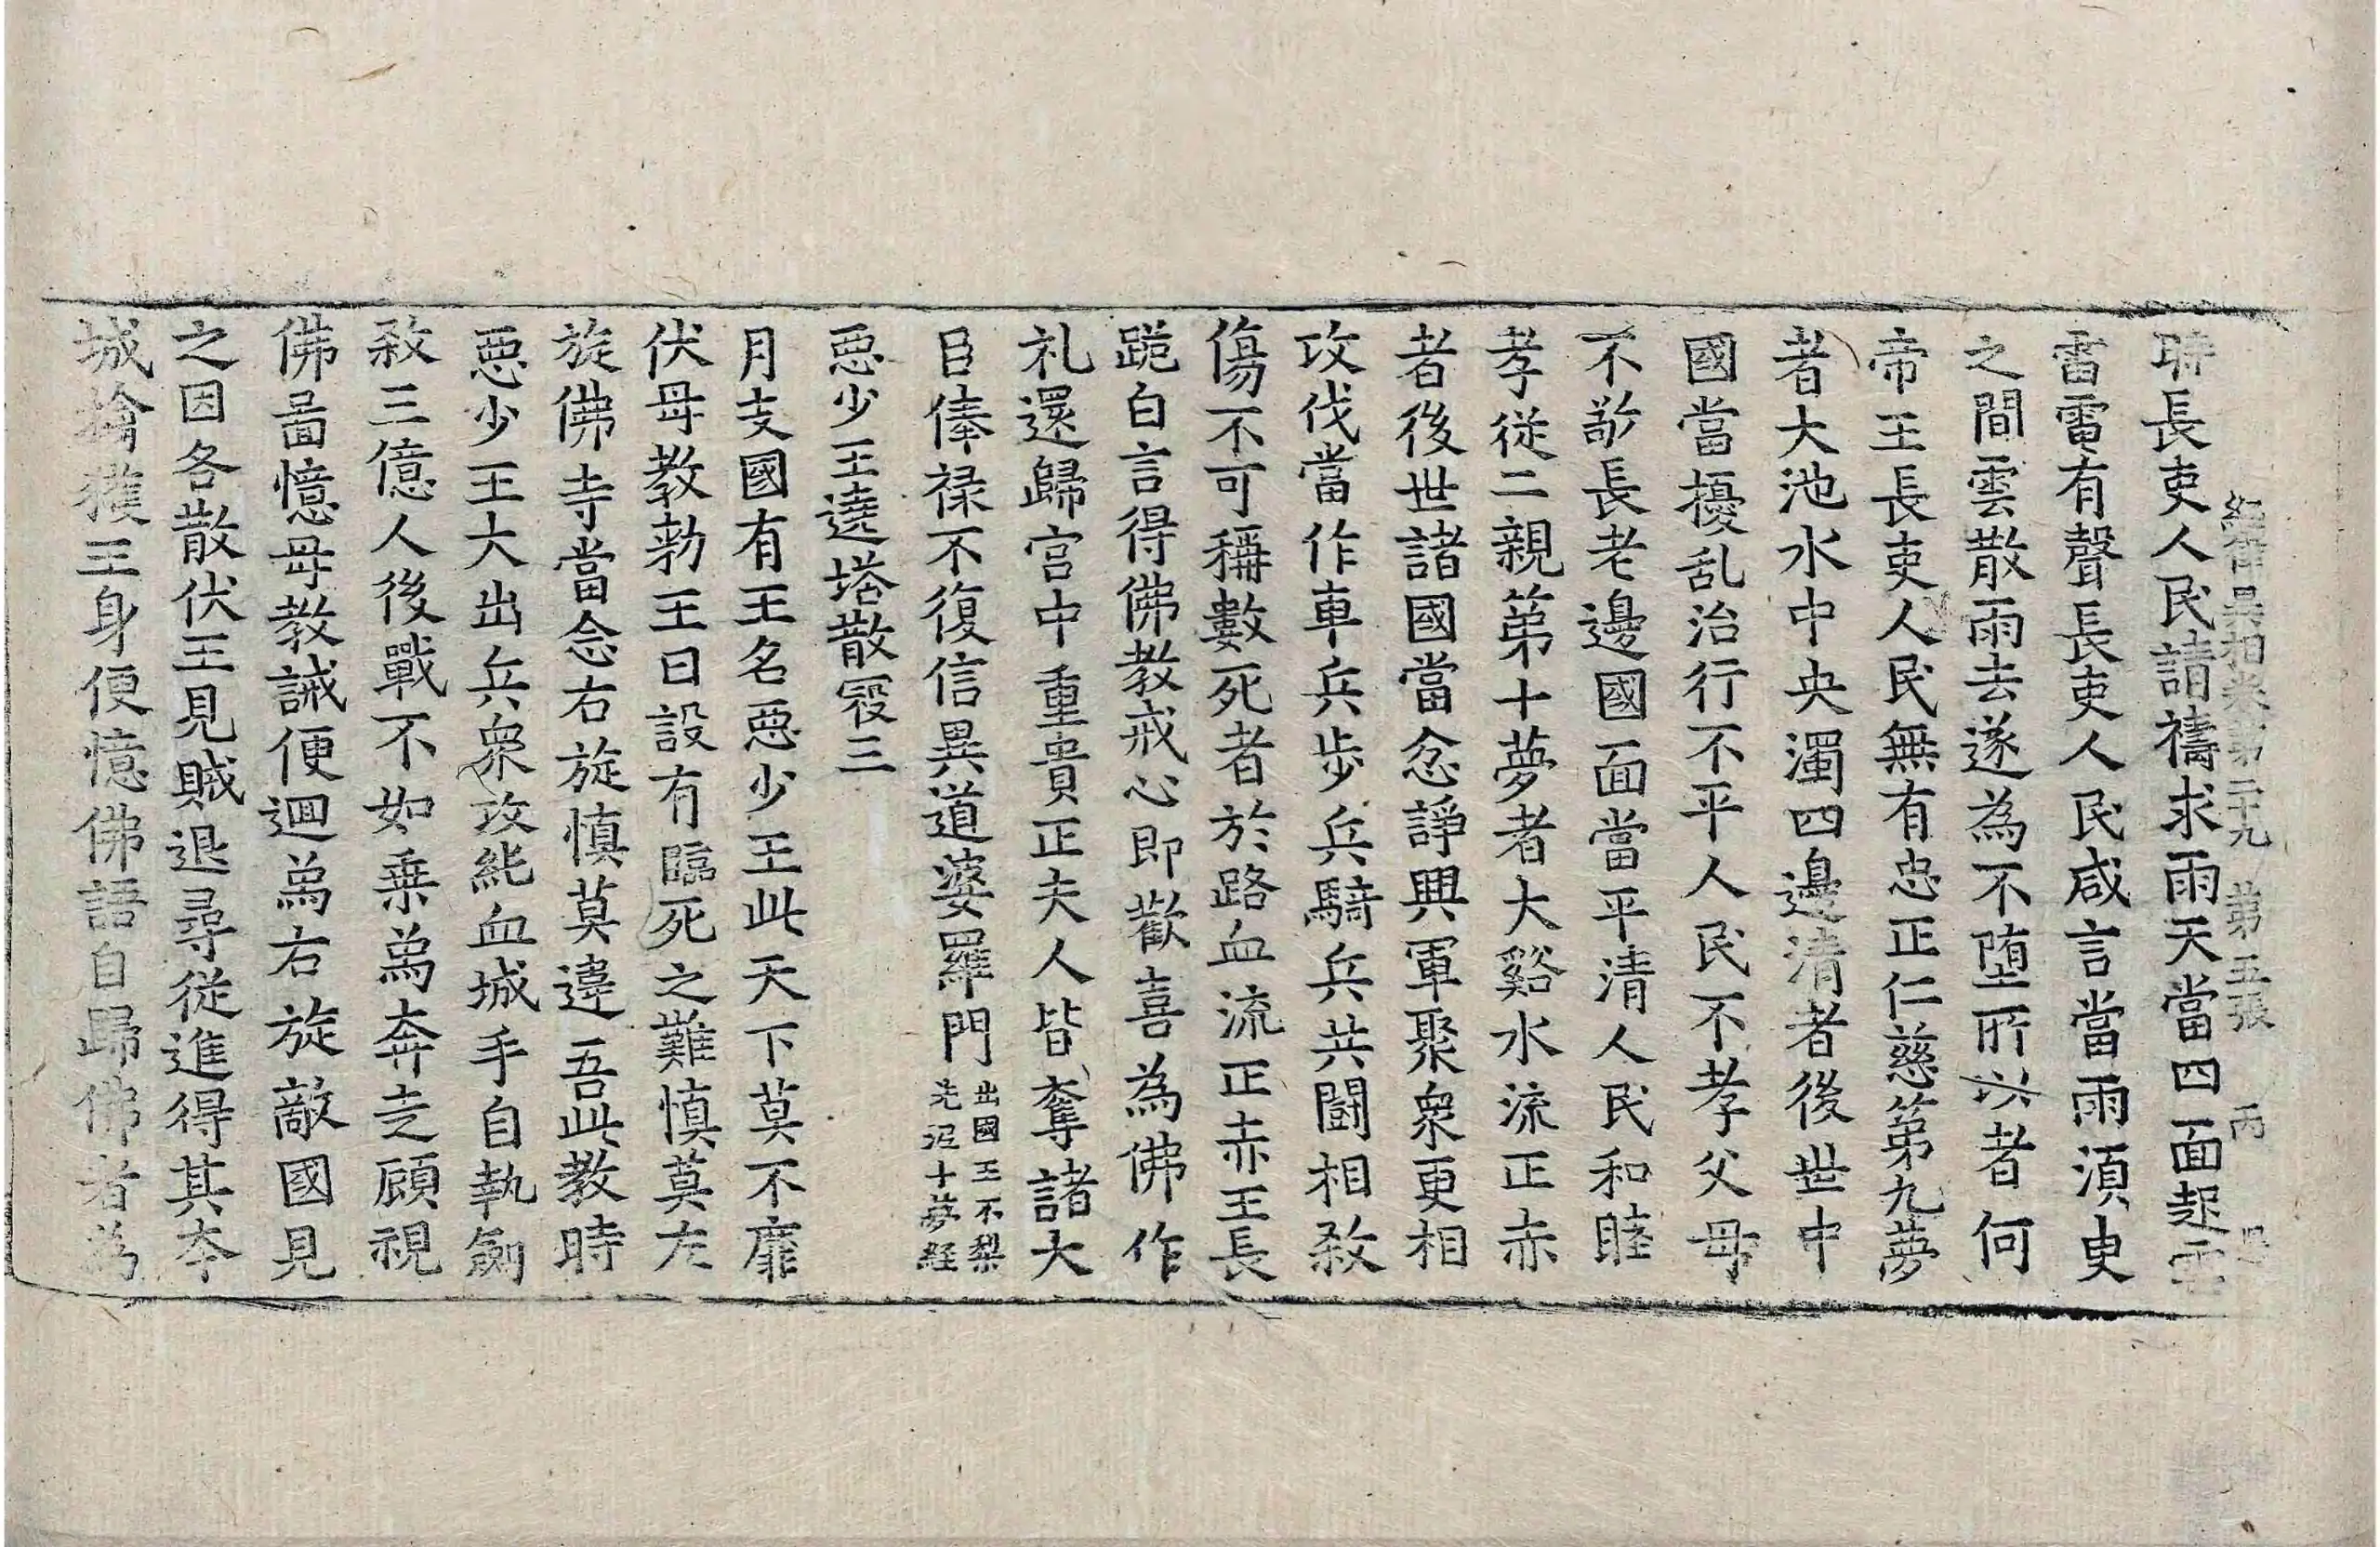 經律異相卷第二十九 第五張 丙
時長吏人民請禱求雨天當四面起雲
雷電有聲長吏人民咸言當雨須臾
之間雲散雨去遂為不堕所以者何
帝王長吏人民無有忠正仁慈第九夢
者大池水中央濁四邊清者後世中
國當擾乱治行不平人民不孝父母
不敬長老邊國面當平清人民和睦
孝従二親第十夢者大谿水流正赤
者後世諸國當忿諍興軍聚衆更相
攻伐當作車兵步兵騎兵共闘相煞
傷不可稱數死者於路血流正赤王長
跪白言得佛教戒心即歡喜為佛作
礼還歸宮中重貴正夫人皆奪諸大
臣俸禄不復信異道婆羅門出國王不梨先泥十夢経
惡少王遶塔散寇三
月支國有王名惡少王此天下莫不靡
伏母教勑王曰設有臨死之難慎莫左
旋佛寺當念右旋慎莫違吾此教時
惡少王大出兵衆攻毗血城手自執劒
煞三億人後戰不如乗爲奔走顧視
佛啚憶母教誡便迴爲右旋敵國見
之因各散伏王見賊退尋従進得其夲
城擒獲王身便憶佛語自歸佛者為